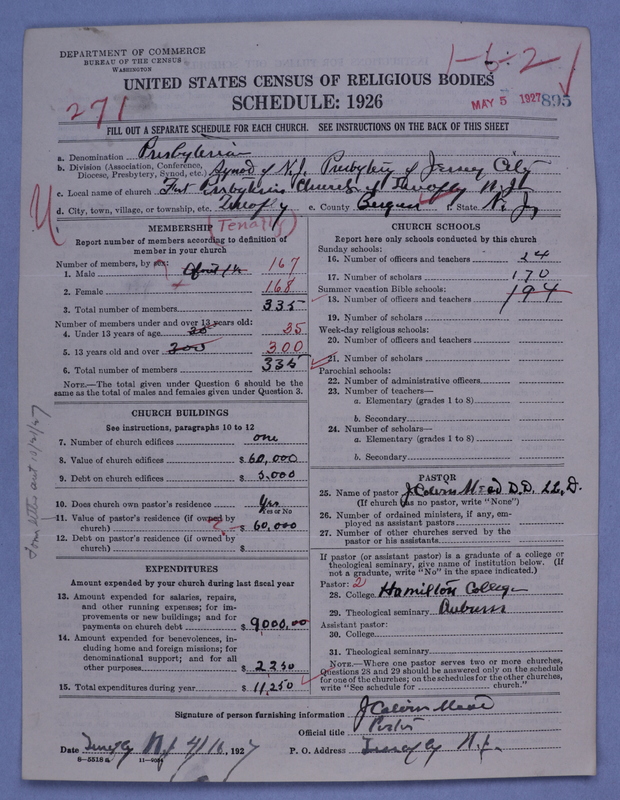 DEPARTMENT OF COMMERCE
BUREAU OF THE CENSUS
WASHINGTON
1-6-21
UNITED STATES CENSUS OF RELIGIOUS BODIES
SCHEDULE: 1926
271
MAY 5 1927 895
FILL OUT A SEPARATE SCHEDULE FOR EACH CHURCH. SEE INSTRUCTIONS ON THE BACK OF THIS SHEET
a. Denomination Presbyterian
b. Division (Association, Conference, Diocese, Presbytery, Synod, etc.) Synod of N.J. Presbytery of Jersey City
c. Local name of church First Presbyterian Church of Tenafly N.J.
d. City, town, village, or township, etc. Tenafly e. County Bergen f. State N.J.
(Tenafly)
MEMBERSHIP
Report number of members according to definition of
member in your church
Number of members, by sex:
1. Male About 1/2 167
2. Female 168
3. Total number of members 335
Number of members under and over 13 years old:
4. Under 13 years of age 35 35
5. 13 years old and over 300 300
6. Total number of members 335
NOTE.—The total given under Question 6 should be the
same as the total of males and females given under Question 3.
CHURCH BUILDINGS
See instructions, paragraphs 10 to 12
7. Number of church edifices one
8. Value of church edifices $60,000
9. Debt on church edifices $5,000
10. Does church own pastor's residence Yes
Yes or No
11. Value of pastor's residence (if owned by
church) $60,000
12. Debt on pastor's residence (if owned by
church) $
EXPENDITURES
Amount expended by your church during last fiscal year
13. Amount expended for salaries, repairs,
and other running expenses; for im-
provements or new buildings; and for
payments on church debt $9000.00
14. Amount expended for benevolences, in-
cluding home and foreign missions; for
denominational support; and for all
other purposes $2250
15. Total expenditures during year $11,250
CHURCH SCHOOLS
Report here only schools conducted by this church
Sunday schools:
16. Number of officers and teachers 24
17. Number of scholars 170
Summer vacation Bible schools:
18. Number of officers and teachers 194
19. Number of scholars
Week-day religious schools:
20. Number of officers and teachers
21. Number of scholars
Parochial schools:
22. Number of administrative officers
23. Number of teachers—
a. Elementary (grades 1 to 8)
b. Secondary
24. Number of scholars—
a. Elementary (grades 1 to 8)
b. Secondary
PASTOR
25. Name of pastor J. Calvin Mead D.D. LL.D.
(If church has no pastor, write "None")
26. Number of ordained ministers, if any, em-
ployed as assistant pastors
27. Number of other churches served by the
pastor or his assistants
If pastor (or assistant pastor) is a graduate of a college or
theological seminary, give name of institution below. (If
not a graduate, write "No" in the space indicated.)
Pastor: 2
28. College Hamilton College
29. Theological seminary Auburn
Assistant pastor:
30. College
31. Theological seminary
NOTE.—Where one pastor serves two or more churches,
Questions 28 and 29 should be answered only on the schedule
for one of the churches; on the schedules for the other churches,
write "See schedule for church."
Signature of person furnishing information J Calvin Mead
Official title Pastor
Date Tenafly N.J. 4/16, 1927 P. O. Address Tenafly N.J.
8-5518 a 11-9554